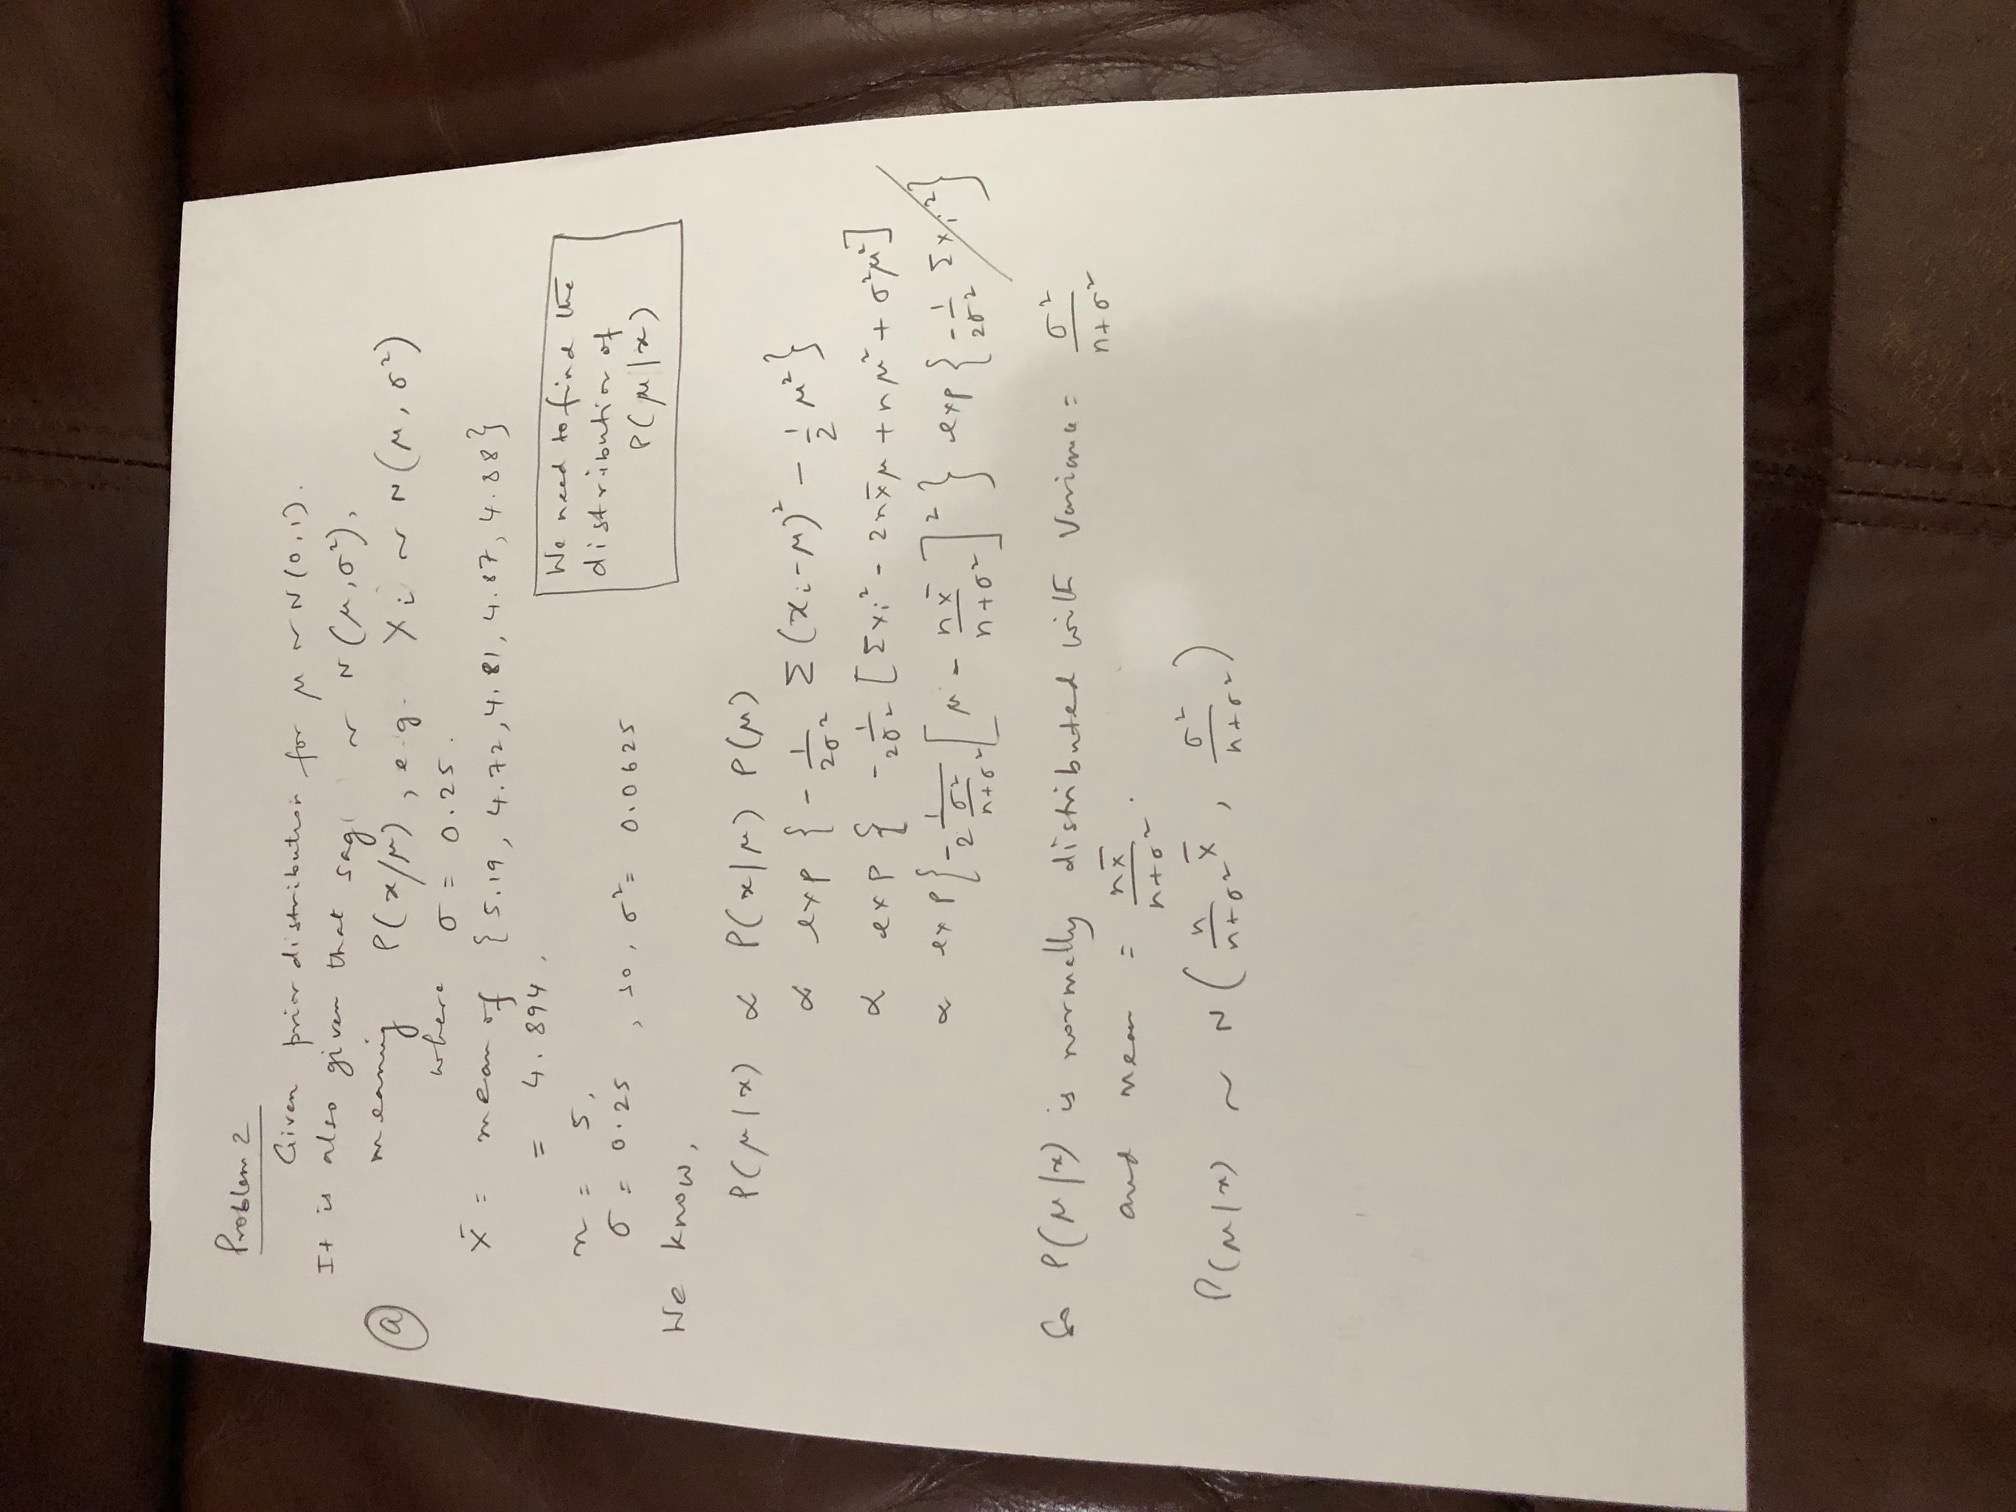 Problem 2
Given prior distribution for μ ~ N(0,1).
It is also given that sag ~ N(μ,σ²),
ⓐ meaning P(x/μ), e.g. Xi ~ N(μ, σ²)
where σ = 0.25.
x̄ = mean of {5.19, 4.72, 4.81, 4.87, 4.88}
= 4.894.
n = 5,
σ = 0.25, so, σ² = 0.0625
We need to find the
distribution of
P(μ|x)
We know,
P(μ|x) ∝ P(x|μ) P(μ)
∝ exp {-1/2σ² Σ(xi-μ)² - 1/2 μ²}
∝ exp { -1/2σ² [Σxi² - 2nx̄μ + nμ² + σ²μ²]
∝ exp{-1/(2 σ²/(n+σ²)) [μ - nx̄/(n+σ²)]²} exp{-1/2σ² Σxi²}
So P(μ|x) is normally distributed with variance = σ²/(n+σ²)
and mean = nx̄/(n+σ²).
P(μ|x) ~ N(n/(n+σ²) x̄, σ²/(n+σ²))